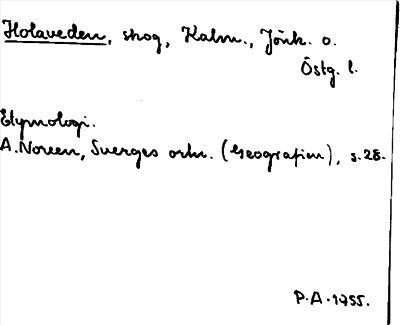 Holaveden, skog, Kalm., Jönk. o.
Östg. l.
Etymologi.
A. Noreen, Sverges ortn. (Geografien), s. 28.
P. A. 1955.